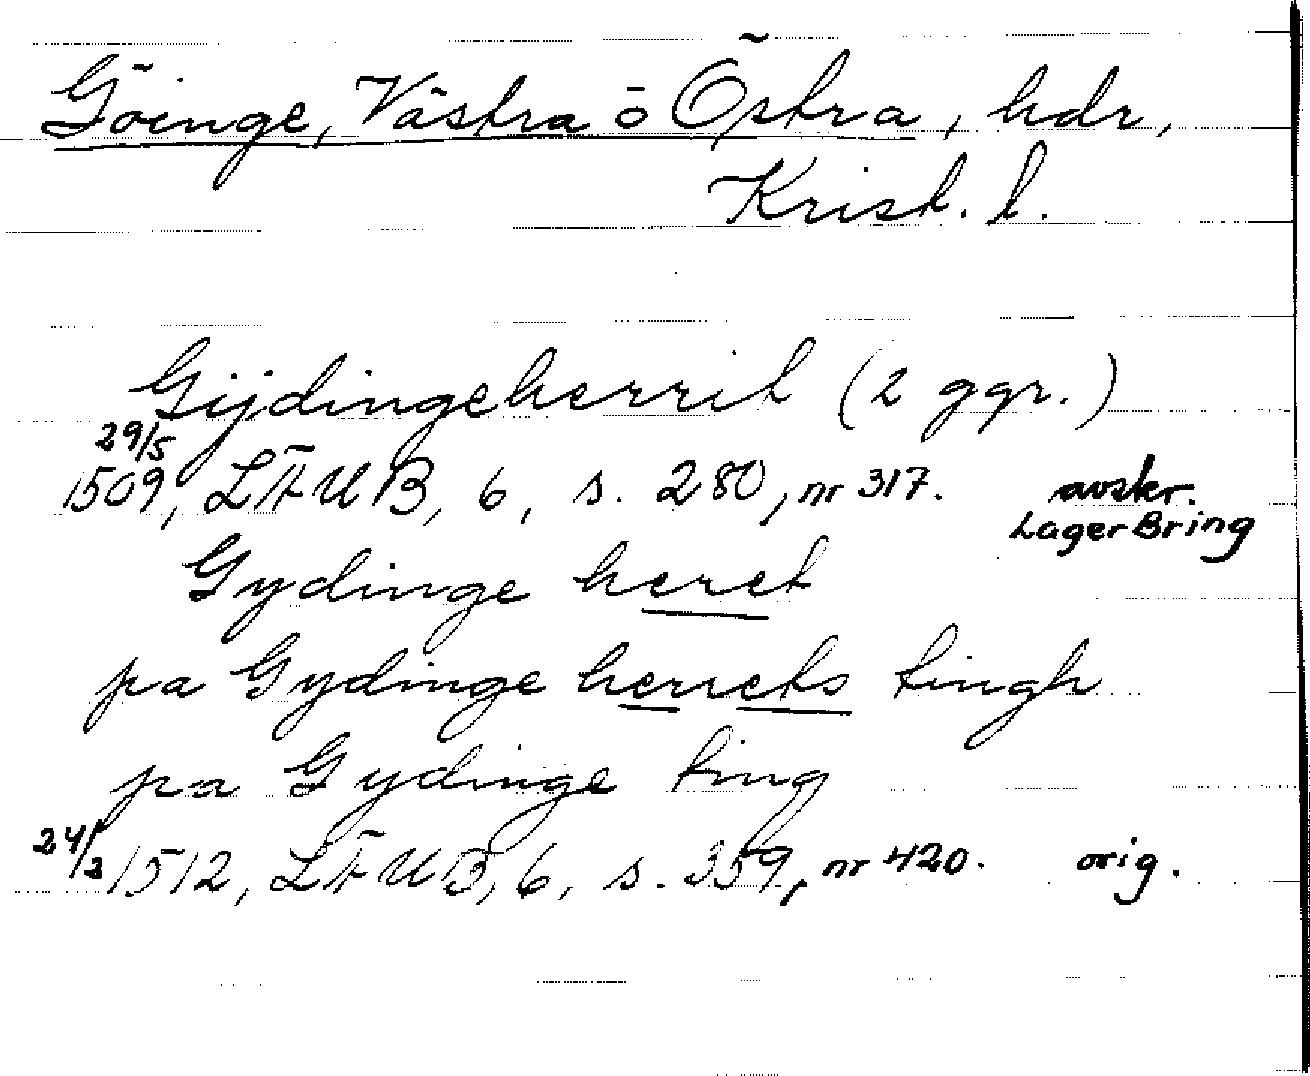 Göinge, Västra o Östra, hdr,
Krist. l.
Gijdingeherrit (2 ggr.)
29/5
1509, LÄUB, 6, s. 280, nr 317. avskr.
LagerBring
Gydinge heret
pa Gydinge herrets tingh
pa Gydinge ting
24/2 1512, LÄUB, 6, s. 359, nr 420. orig.